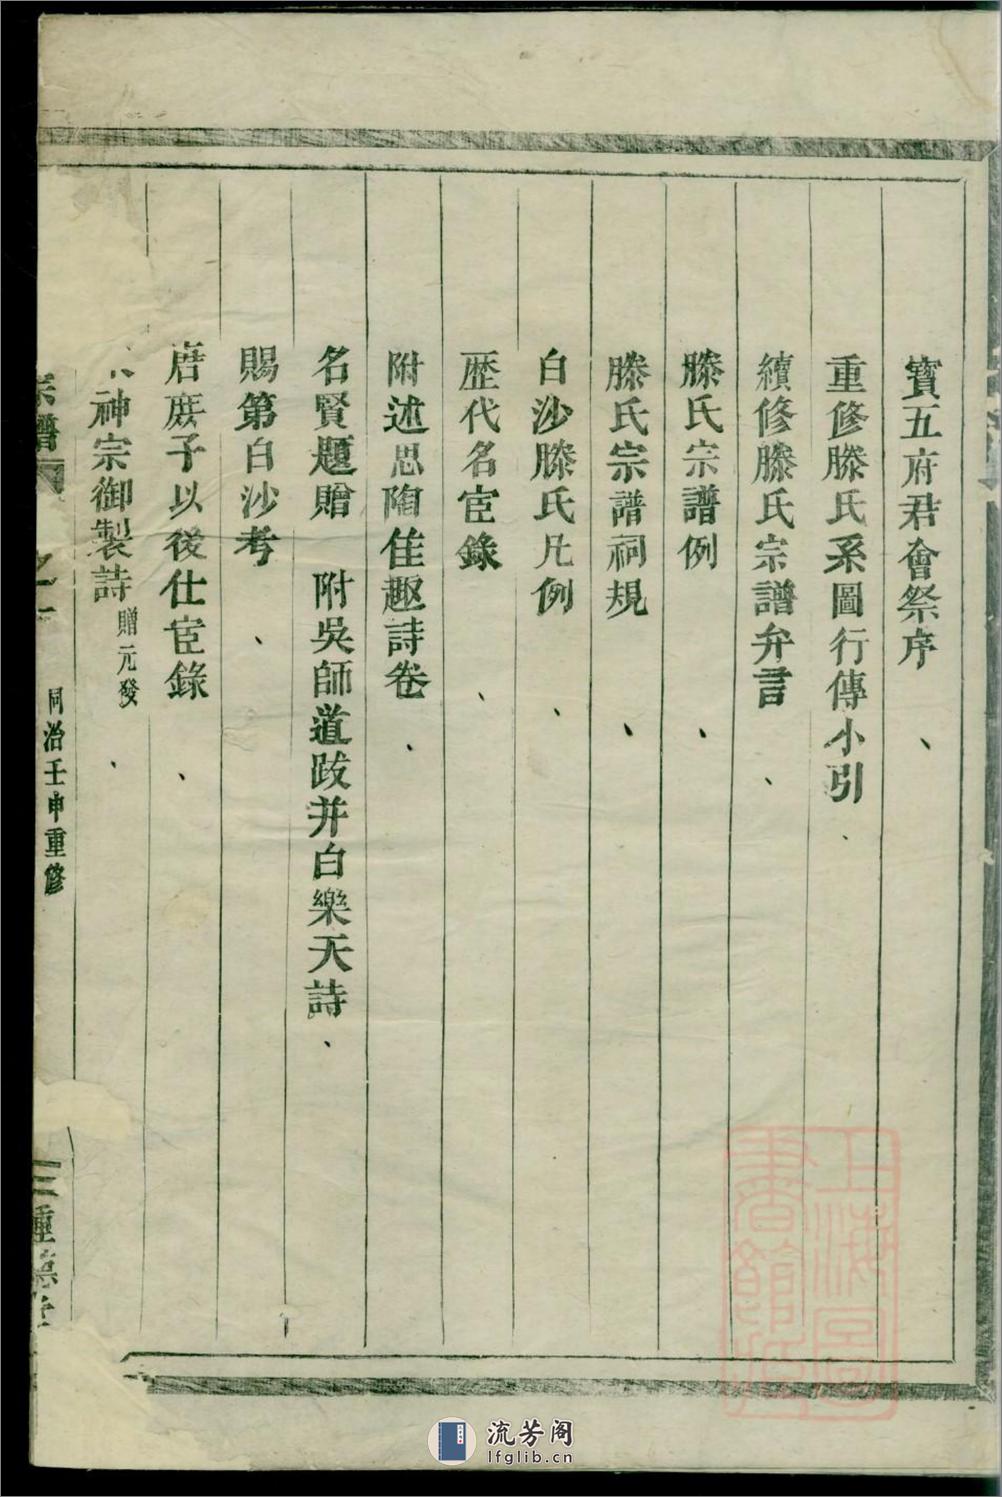 寶五府君會祭序
重修滕氏系圖行傳小引
續修滕氏宗譜弁言
滕氏宗譜例
滕氏宗譜祠規
白沙滕氏凡例
歷代名宦錄
附述思陶佳趣詩卷
名賢題贈 附吳師道跋并白樂天詩
賜第白沙考
唐庶子以後仕宦錄
神宗御製詩贈元發
宗譜
同治壬申重修
種德堂
上海圖書館藏
流芳阁
lfglib.cn